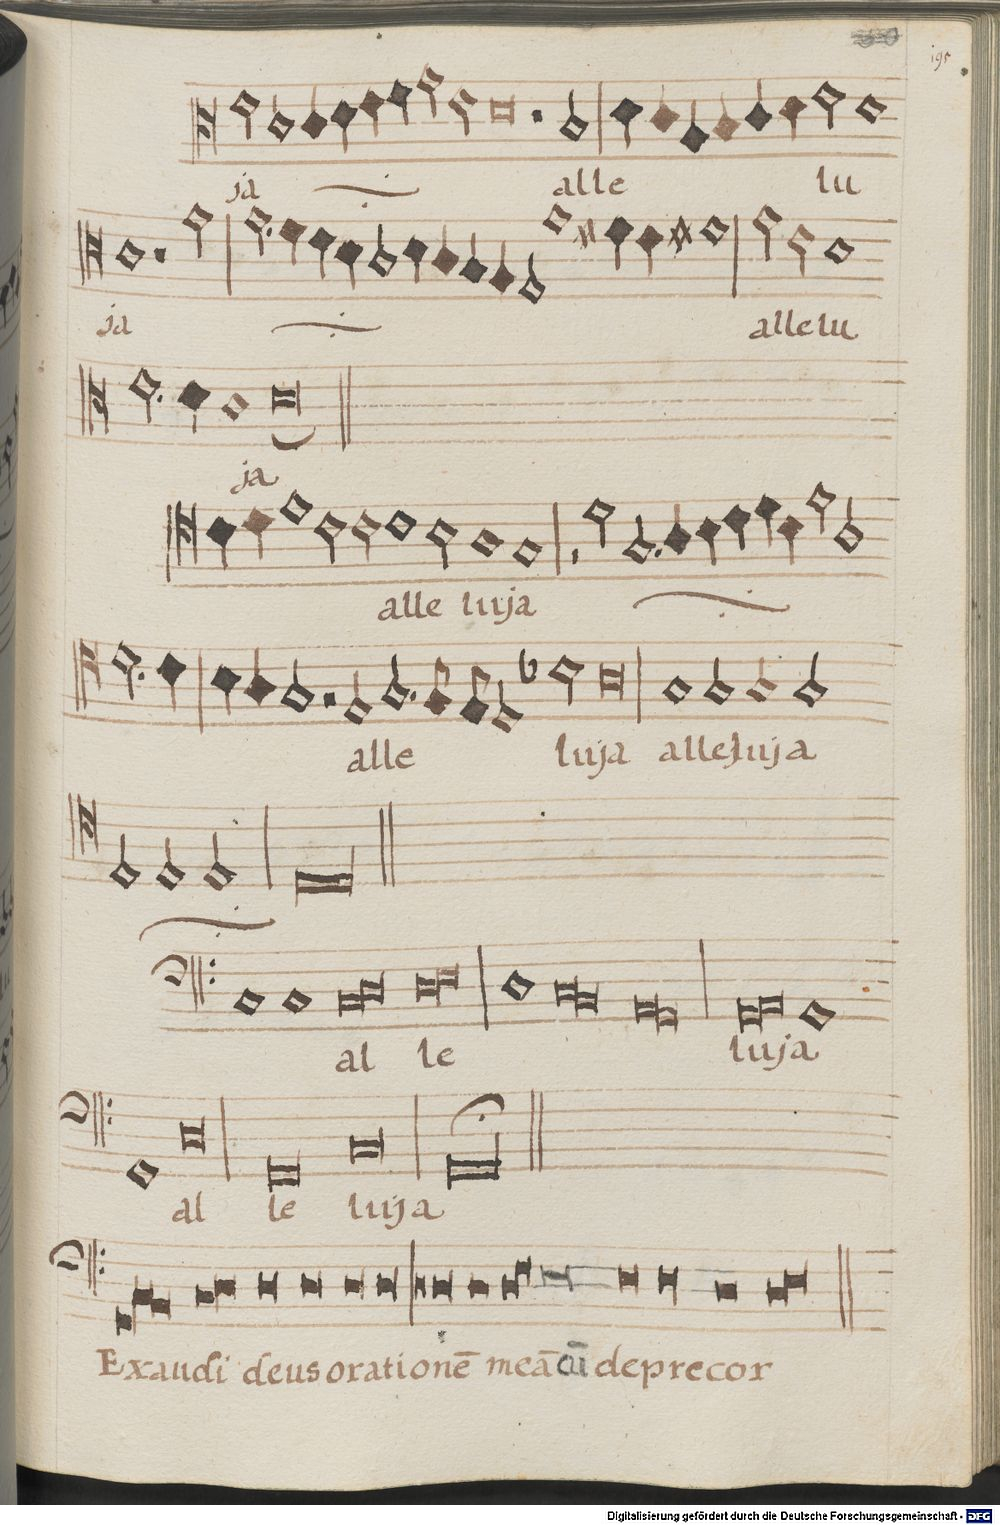 195
ja alle lu
ja allelu
ja
alle luja
alle luja alleluja
al le luja
al le luja
Exaudi deus orationē meā cū deprecor
Digitalisierung gefördert durch die Deutsche Forschungsgemeinschaft - DFG